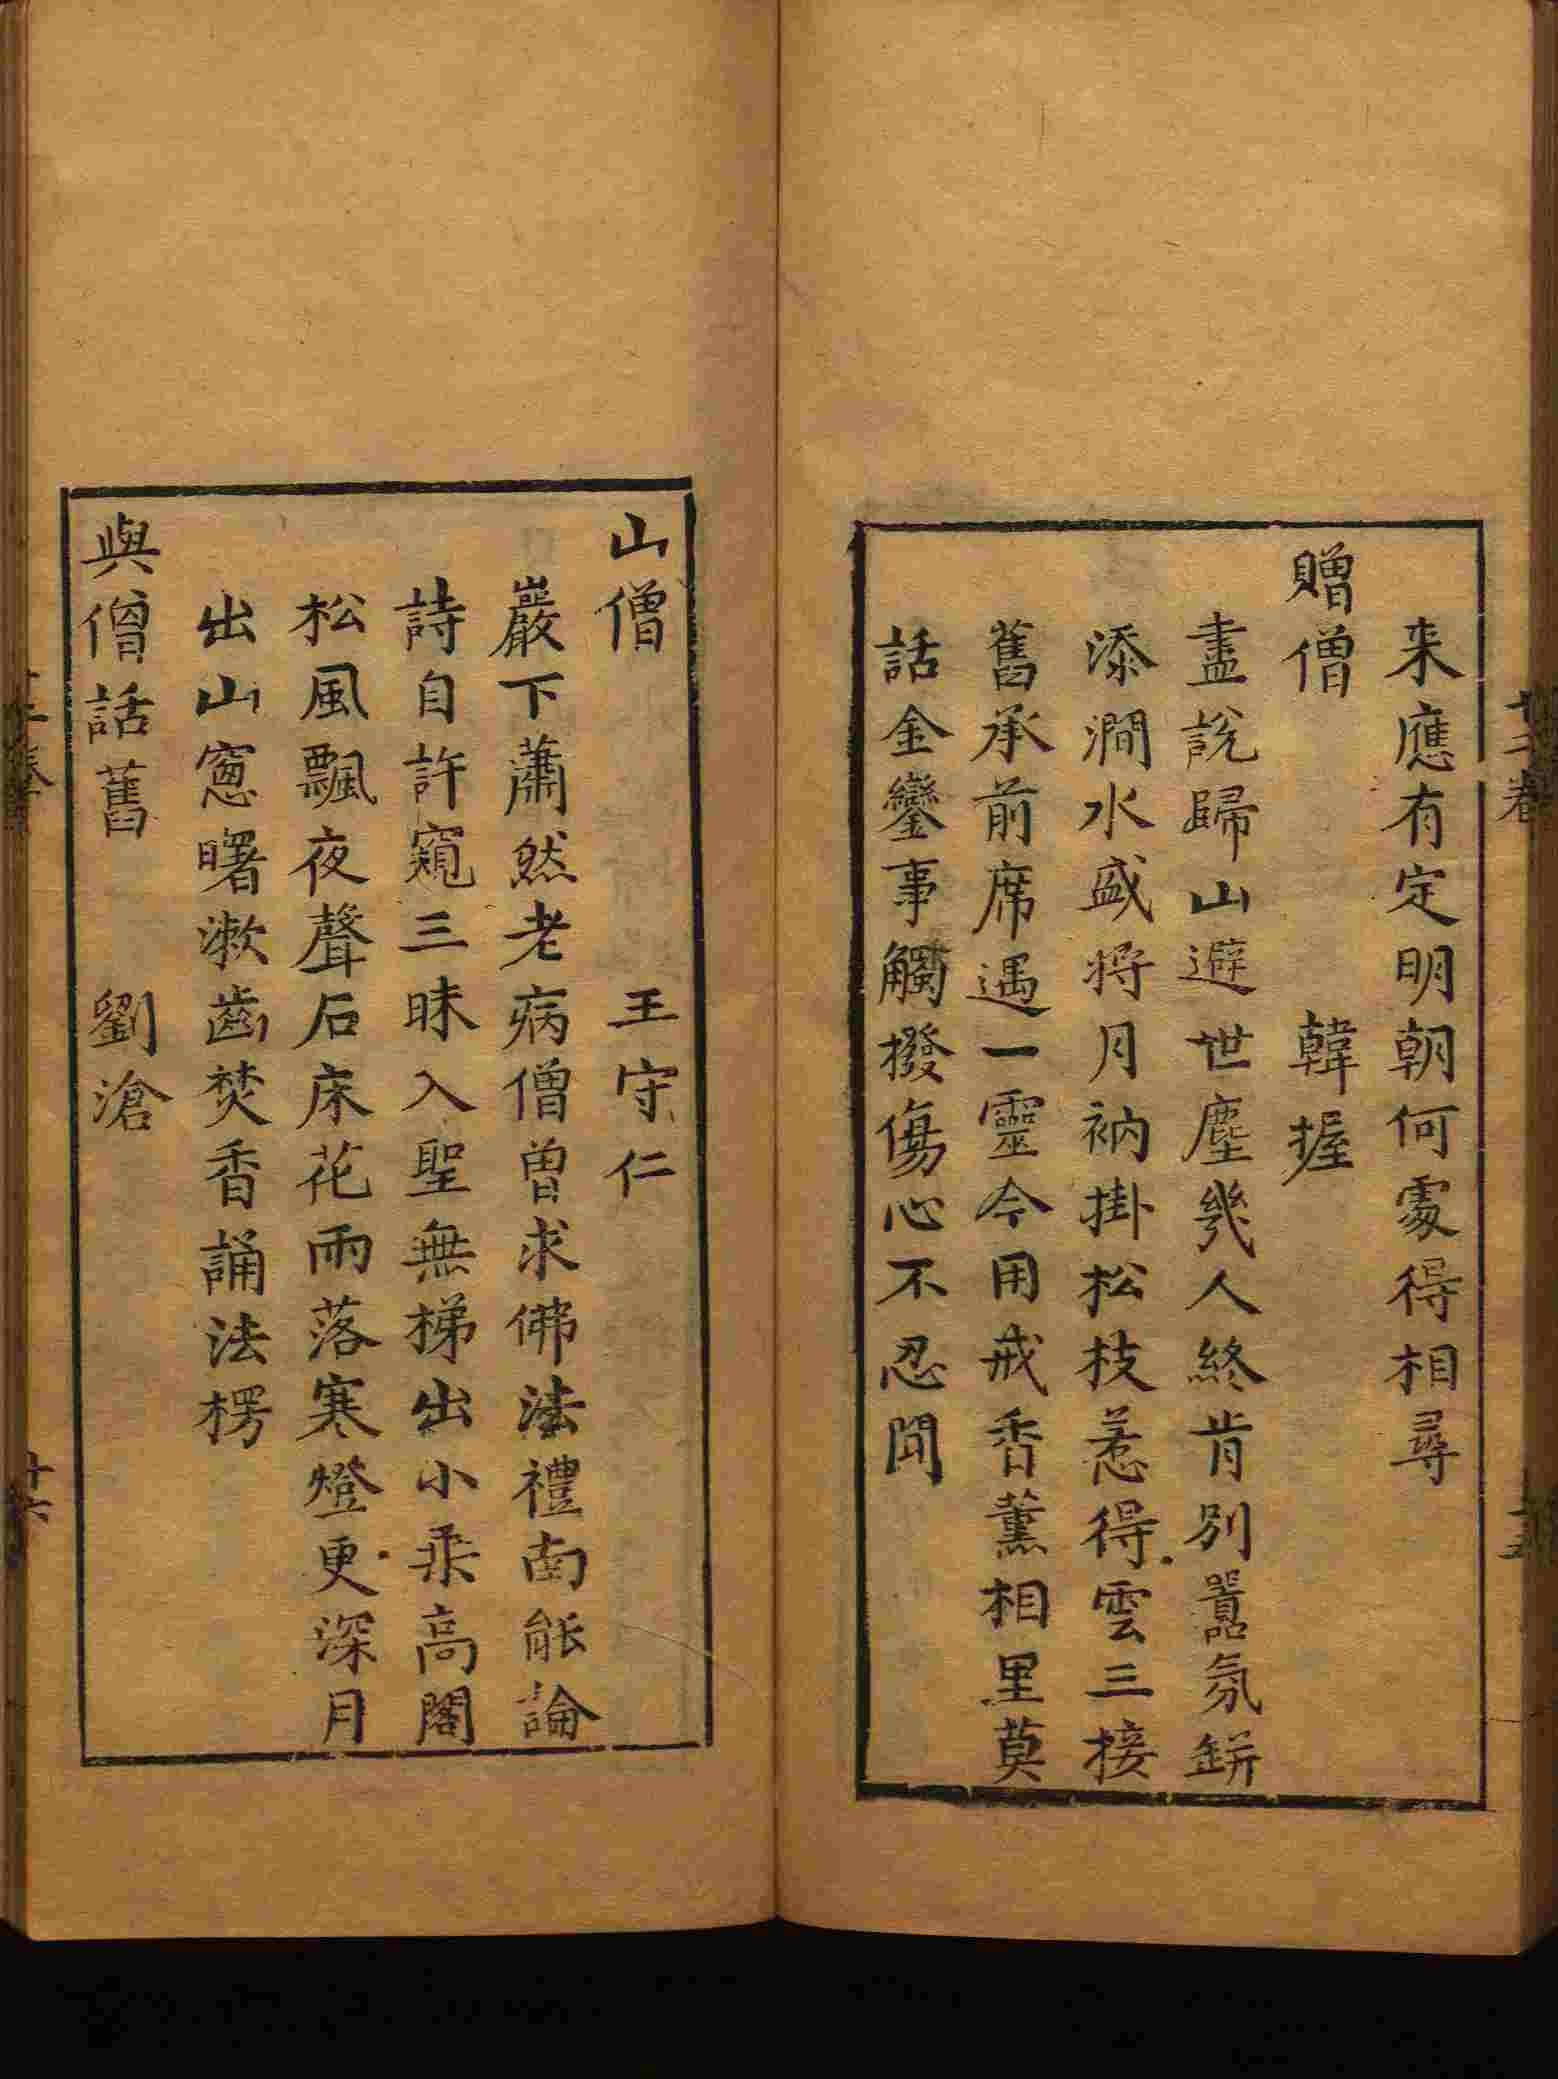 来應有定明朝何處得相尋
贈僧　韓握
盡說歸山避世塵幾人終肯別囂氛缾
添澗水盛將月衲掛松枝惹得雲三接
舊承前席遇一靈今用戒香薰相里莫
話金鑾事觸撥傷心不忍聞
山僧　王守仁
巖下蕭然老病僧曾求佛法禮南能論
詩自許窺三昧入聖無梯出小乘高閣
松風飄夜聲石床花雨落寒燈更深月
出山窻曙漱齒焚香誦法楞
與僧話舊　劉滄
十六